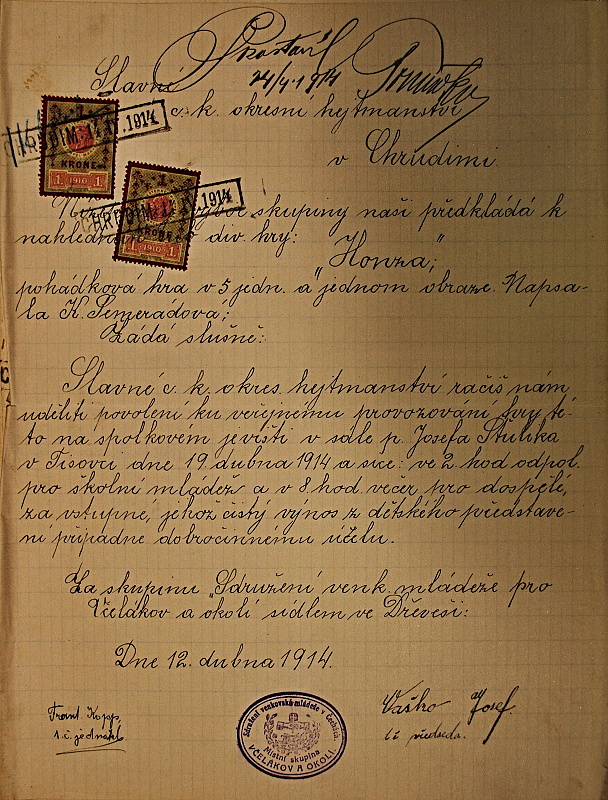 Slavné
24/4 1914
c. k. okresní hejtmanství
v Chrudimi.
CHRUDIM 1914
KRONE
1 1910 1
CHRUDIM 1914
KRONE
1 1910 1
skupiny naší předkládá k
div. hry:
"Honza",
pohádková hra v 5 jedn. a jednom obraze. Napsa-
la K. Semerádova;
Žádá slušně:
Slavné c. k. okres. hejtmanství račiž nám
uděliti povolení ku veřejnému provozování hry té-
to na spolkovém jevišti v sále p. Josefa Štulika
v Tisovci dne 19. dubna 1914 a sice: ve 2 hod odpol.
pro školní mládež a v 8. hod. večer pro dospělé,
za vstupné, jehož čistý výnos z dětského představe-
ní připadne dobročinnému účelu.
Za skupinu "Sdružení venk. mládeže pro
Včelákov a okolí sídlem ve Dřevěši:
Dne 12. dubna 1914.
Frant. Kopp,
t. č. jednatel
Sdružení venkovské mládeže v Čechách
Místní skupina
VČELÁKOV A OKOLÍ.
Vaško Josef.
t č předseda.